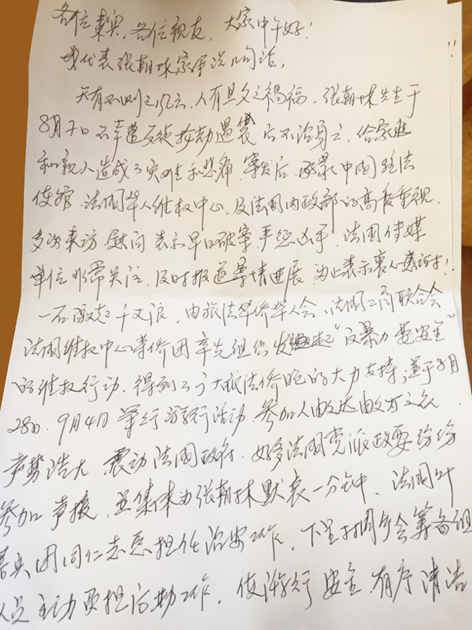 各位来宾，各位亲友，大家中午好！
我代表张朝林家属说几句话，
天有不测之风云，人有旦夕之祸福，张朝林先生于
8月7日不幸遭受被抢劫遇袭后不治身亡，给家庭
和亲人造成了灾难和悲痛，案发后，承蒙中国驻法
使馆，法国华人维权中心，及法国内政部的高度重视，
多次来访慰问表示早日破案严惩凶手，法国传媒
单位非常关注，及时报道事情进展，为此表示衷心感谢！
一石激起千丈浪，由旅法华侨华人会，法国工商联合会
法国维权中心等侨团率先组织发起"反暴力要安全"
的维权行动，得到了广大旅法侨胞的大力支持，并于8月
28日，9月4日举行游行活动，参加人数达数万之众，
声势浩大 震动法国政府，如多法国党派政要纷纷
参加声援，并集体为张朝林默哀一分钟，法国
团同仁志愿担任治安工作，下 会筹备组
人员主动负担后勤工作，使游行安全有序清洁